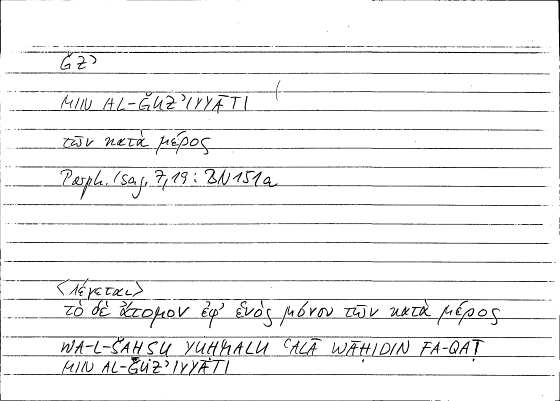 ǦZʾ
MIN AL-ǦUZʾIYYĀTI
τῶν κατὰ μέρος
Porph. Isag. 7,19 : BN 151a
<λέγεται>
τὸ δὲ ἄτομον ἐφ' ἑνὸς μόνου τῶν κατὰ μέρος
WA-L-ŠAḪṢU YUḤMALU ʿALĀ WĀḤIDIN FA-QAṬ
MIN AL-ǦUZʾIYYĀTI